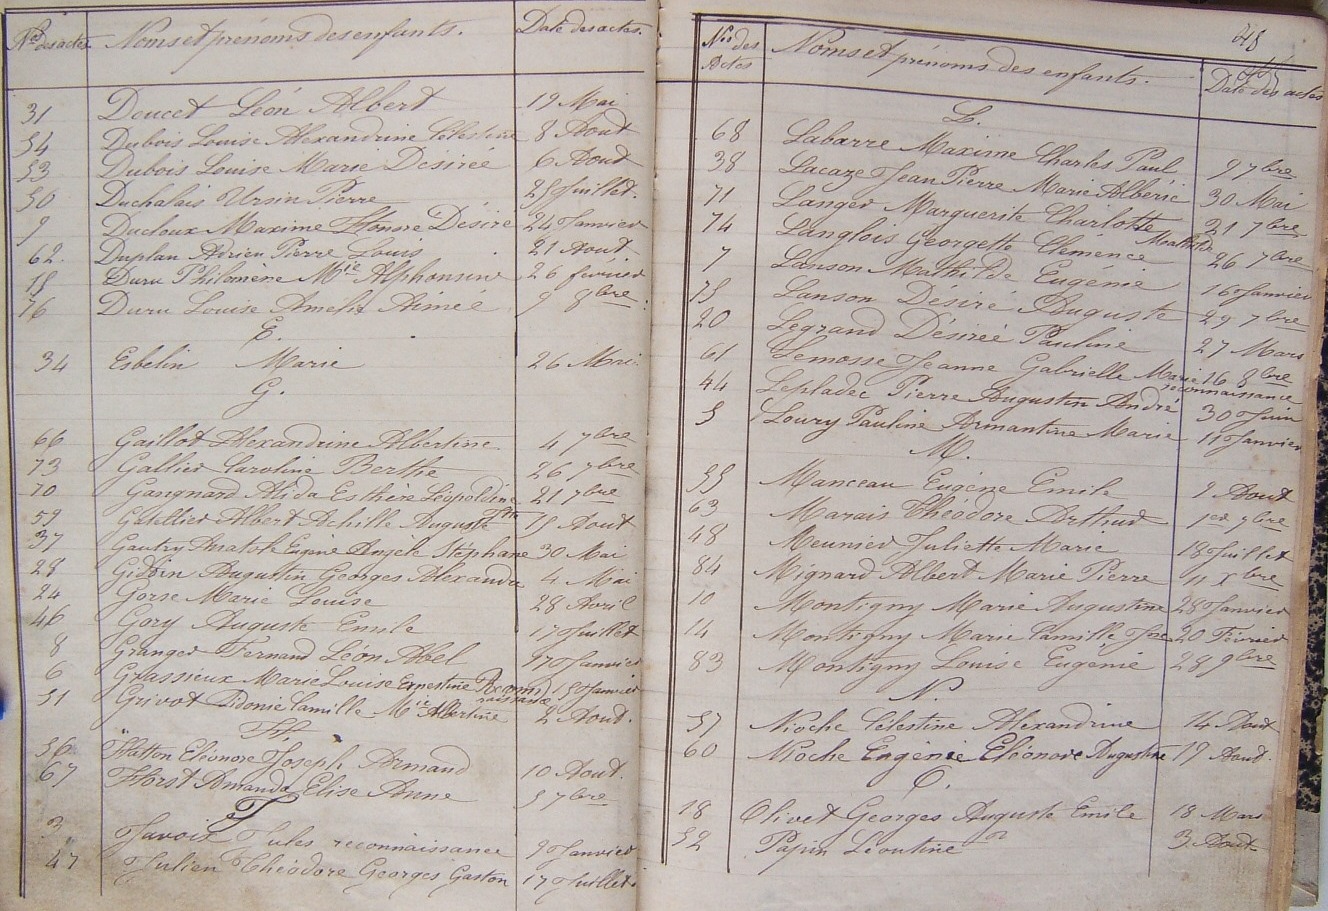 Nos des actes Noms et prénoms des enfants. Date des actes.
31 Doucet Léon Albert 19 Mai
54 Dubois Louise Alexandrine Célestine 8 Aout
53 Dubois Louise Marie Désirée 6 Aout
50 Duchalais Ursin Pierre 25 Juillet.
9 Ducloux Maxime Honoré Désiré 24 Janvier
62. Duplan Adrien Pierre Louis 21 Aout
15 Duru Philomène Mie Alphonsine 26 février
76 Duru Louise Amélie Aimée 9 8bre
E.
34 Esbelin Marie 26 Mai
G.
66 Gaillot Alexandrine Albertine 4 7bre
73 Gallier Caroline Berthe 26 7bre
70 Gangnard Alida Esthère Léopoldine 21 7bre
59 Gatellier Albert Achille Auguste 15 Aout
37 Gautry Anatole Eugène Angèle Stéphane 30 Mai
28 Augustin Georges Alexandre 4 Mai
24 Gorse Marie Louise 28 Avril
46 Gory Auguste Emile 17 Juillet
8 Granger Fernand Léon Abel 17 Janvier
6 Grassieux Marie Louise Ernestine Reconnaissance 15 Janvier
51 Grivot Sidonie Camille Mie Albertine 2 Aout.
H.
56 Hatton Eléonore Joseph Armand 10 Aout.
67 Horst Amanda Elise Anne 5 7bre
J
3 Javoit Jules reconnaissance 9 Janvier
47 Julien Théodore Georges Gaston 17 Juillet.
48
Nos des Actes Noms et prénoms des enfants. Date des actes
L.
68 Labarre Maxime Charles Paul 9 7bre
38 Lacaze Jean Pierre Marie Albéric 30 Mai
71 Langer Marguerite Charlotte 21 7bre
74 Langlois Georgette Clémence Mathilde 26 7bre
7 Lanson Mathilde Eugénie 16 Janvier
75 Lanson Désiré Auguste 29 7bre
20 Legrand Désirée Pauline 27 Mars
61 Lemosse Jeanne Gabrielle Marie reconnaissance 16 8bre
44 Lepladec Pierre Augustin André 30 Juin
5 Loury Pauline Armantine Marie 11 Janvier
M.
55 Manceau Eugène Emile 9 Aout
63 Marais Théodore Arthur 1er 7bre
48 Meunier Juliette Marie 18 Juillet
84 Mignard Albert Marie Pierre 11 Xbre
10 Montigny Marie Augustine 28 Janvier
14 Montigny Marie Camille 20 Février
83 Montigny Louise Eugénie 28 9bre
N.
57 Nioche Célestine Alexandrine 14 Aout
60 Nioche Eugénie Eléonore Augustine 19 Aout.
O.
18 Olivet Georges Auguste Emile 18 Mars
P
52 Papin Léontine 3 Aout